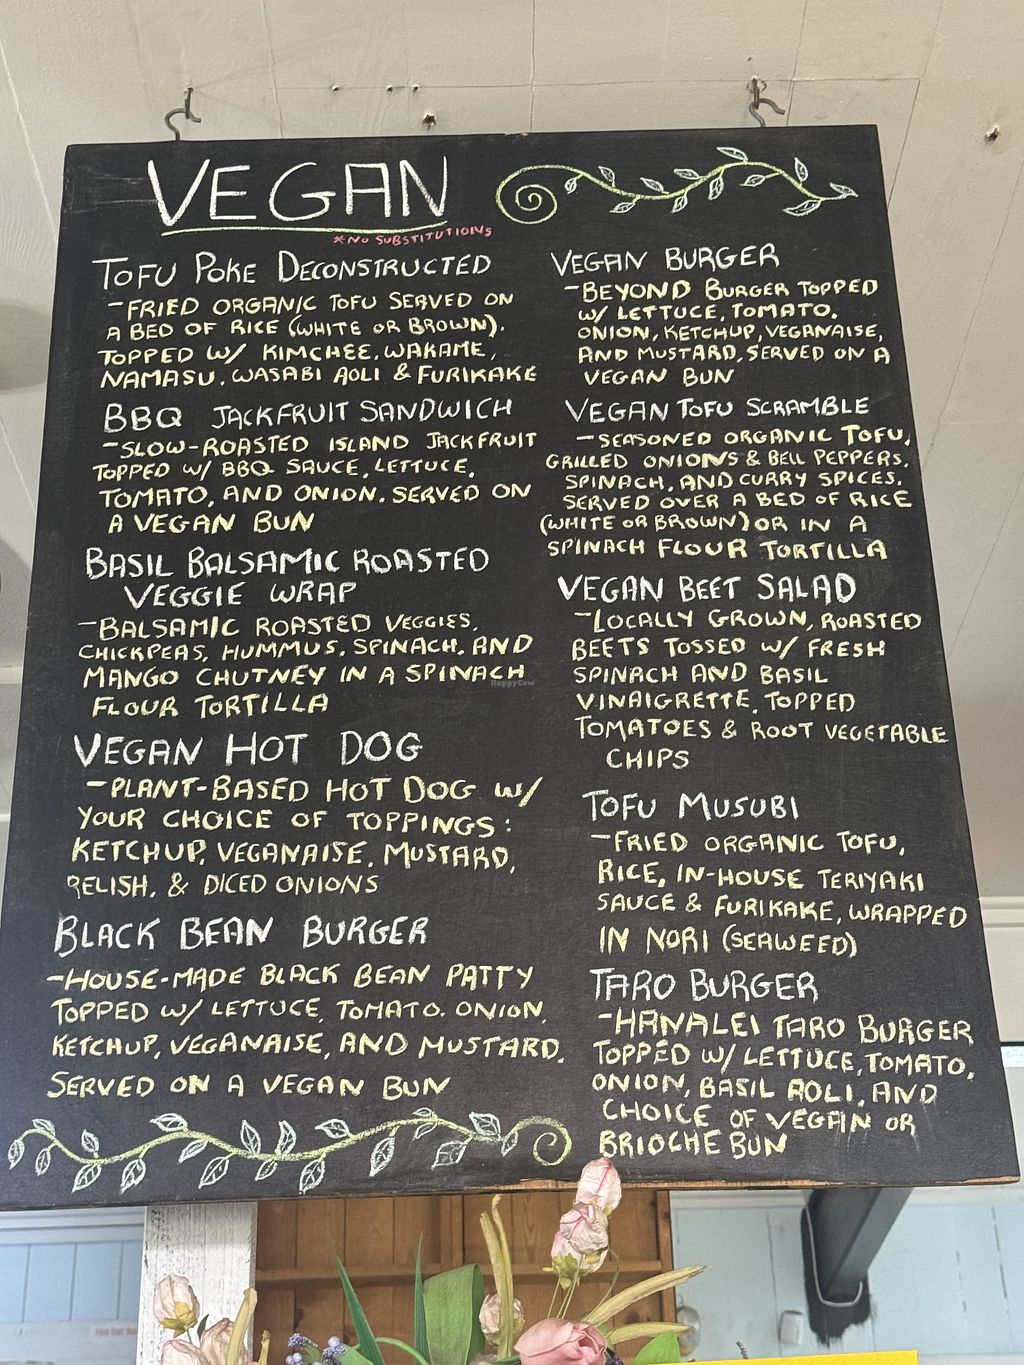 VEGAN
*NO SUBSTITUTIONS
TOFU POKE DECONSTRUCTED
-FRIED ORGANIC TOFU SERVED ON
A BED OF RICE (WHITE OR BROWN).
TOPPED W/ KIMCHEE, WAKAME,
NAMASU, WASABI AOLI & FURIKAKE
BBQ JACKFRUIT SANDWICH
-SLOW-ROASTED ISLAND JACKFRUIT
TOPPED W/ BBQ SAUCE, LETTUCE,
TOMATO, AND ONION. SERVED ON
A VEGAN BUN
BASIL BALSAMIC ROASTED
VEGGIE WRAP
-BALSAMIC ROASTED VEGGIES,
CHICKPEAS, HUMMUS, SPINACH, AND
MANGO CHUTNEY IN A SPINACH
FLOUR TORTILLA
VEGAN HOT DOG
-PLANT-BASED HOT DOG W/
YOUR CHOICE OF TOPPINGS:
KETCHUP, VEGANAISE, MUSTARD,
RELISH, & DICED ONIONS
BLACK BEAN BURGER
-HOUSE-MADE BLACK BEAN PATTY
TOPPED W/ LETTUCE, TOMATO, ONION,
KETCHUP, VEGANAISE, AND MUSTARD.
SERVED ON A VEGAN BUN
VEGAN BURGER
-BEYOND BURGER TOPPED
W/ LETTUCE, TOMATO,
ONION, KETCHUP, VEGANAISE,
AND MUSTARD, SERVED ON A
VEGAN BUN
VEGAN TOFU SCRAMBLE
-SEASONED ORGANIC TOFU,
GRILLED ONIONS & BELL PEPPERS,
SPINACH, AND CURRY SPICES.
SERVED OVER A BED OF RICE
(WHITE OR BROWN) OR IN A
SPINACH FLOUR TORTILLA
VEGAN BEET SALAD
-LOCALLY GROWN, ROASTED
BEETS TOSSED W/ FRESH
SPINACH AND BASIL
VINAIGRETTE, TOPPED
TOMATOES & ROOT VEGETABLE
CHIPS
TOFU MUSUBI
-FRIED ORGANIC TOFU,
RICE, IN-HOUSE TERIYAKI
SAUCE & FURIKAKE, WRAPPED
IN NORI (SEAWEED)
TARO BURGER
-HANALEI TARO BURGER
TOPPED W/ LETTUCE, TOMATO,
ONION, BASIL AOLI, AND
CHOICE OF VEGAN OR
BRIOCHE BUN
HappyCow